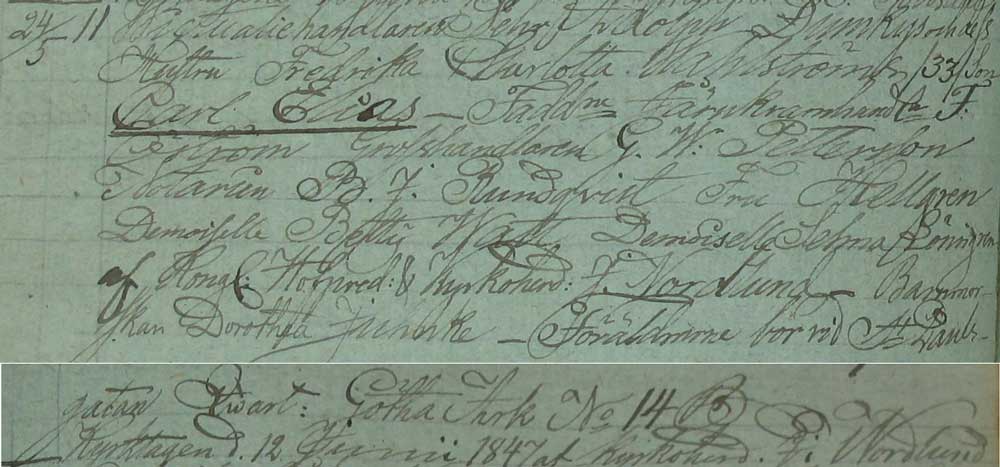 24/5 11 Victualiehandlaren Dunkyson des
Hustru Fredrika Charlotta Wahlströmer /33/ Son
Carl Elias — Faddrne Färgkramhandl:n F.
Öström Grosshandlaren G. W. Petterson
Notarien B. J. Rundqvist Fru Hellgren
Demoiselle Betty Watz Demoiselle Selma Rönngren
af Kongl: Hofpred: & Kyrkoherd: J. Nordlund — Barnmor-
skan Dorothea — Föräldrarne bor vid St Pauls-
gatan Qwart: Götha Ark No 14 B
Kyrktagen d. 12 Junii 1847 af Kyrkoherd. Nordlund